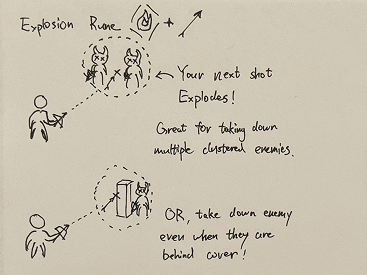 Explosion Rune +
Your next shot
Explodes!
Great for taking down
multiple clustered enemies.
OR, take down enemy
even when they are
behind cover!